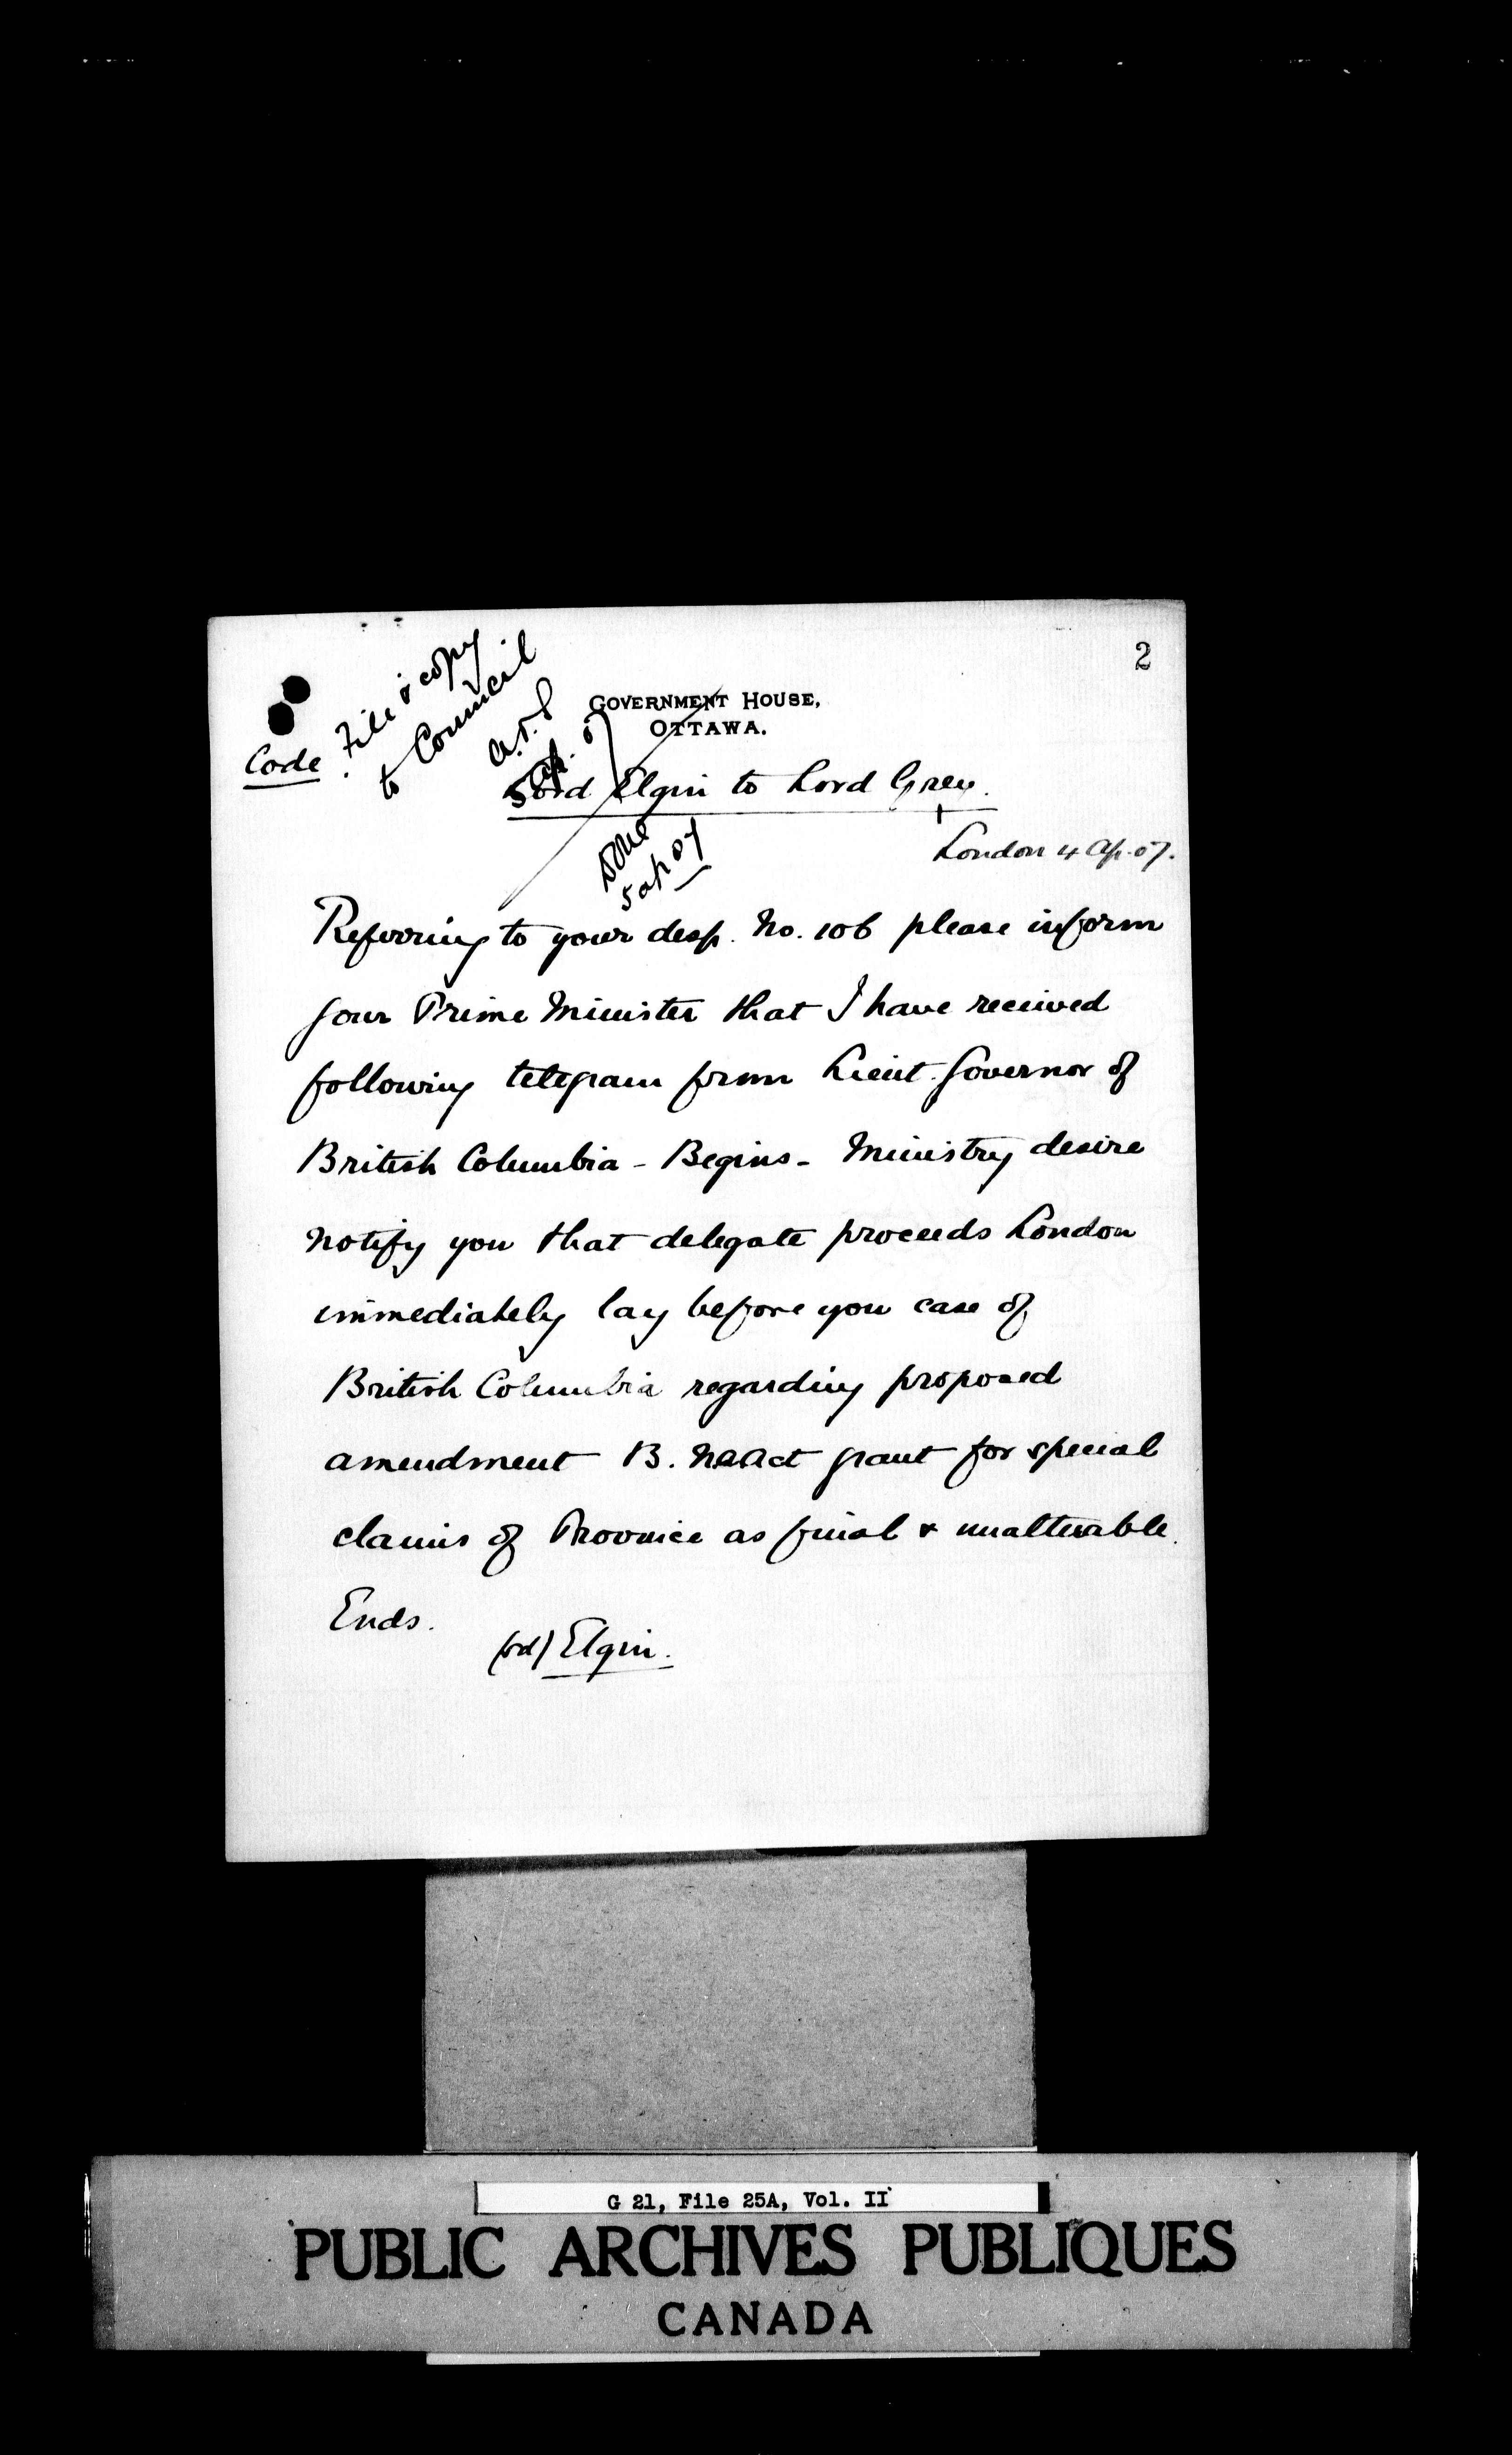 2
File & copy
to Council
Code.
GOVERNMENT HOUSE,
OTTAWA.
5 Ap. 07
Lord Elgin to Lord Grey.
Done
5 ap 07
London 4 Ap. 07.
Referring to your desp. No. 106 please inform
your Prime Minister that I have received
following telegram from Lieut. Governor of
British Columbia - Begins - Ministry desire
notify you that delegate proceeds London
immediately lay before you case of
British Columbia regarding proposed
amendment B. N A Act grant for special
claims of Province as final & unalterable.
Ends.
(sd) Elgin.
G 21, File 25A, Vol. II
PUBLIC ARCHIVES PUBLIQUES
CANADA